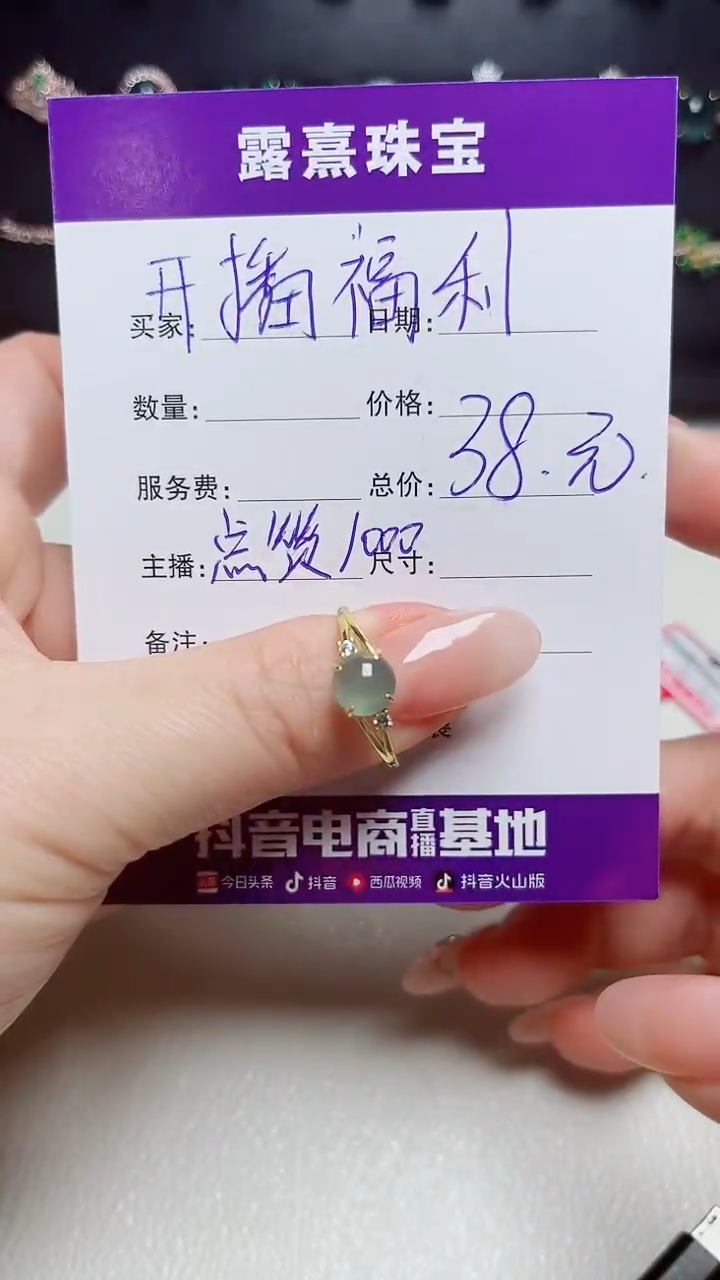 露熹珠宝
开播福利
买家: 日期:
数量: 价格:
38.元.
服务费: 总价:
点赞1000
主播: 尺寸:
备注:
抖音电商直播基地
头条 今日头条 抖音 西瓜视频 抖音火山版